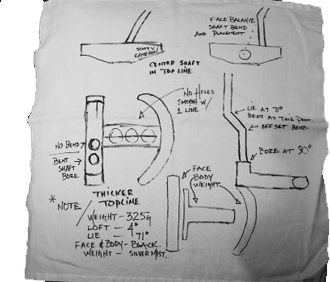 FACE BALANCE
SHAFT BEND
AND PLACEMENT
CENTER SHAFT
IN TOP LINE
NO HOLES
SMOOTH W/
1 LINE
LIE AT 71°
BENT AT THIS POINT
OFFSET BEND
NO BEND
BENT
SHAFT
BORE
BORE AT 90°
FACE
BODY
WEIGHT
THICKER
TOPLINE
* NOTE
WEIGHT - 325G
LOFT - 4°
LIE - 71°
FACE & BODY - BLACK
WEIGHT - SILVER MIST.